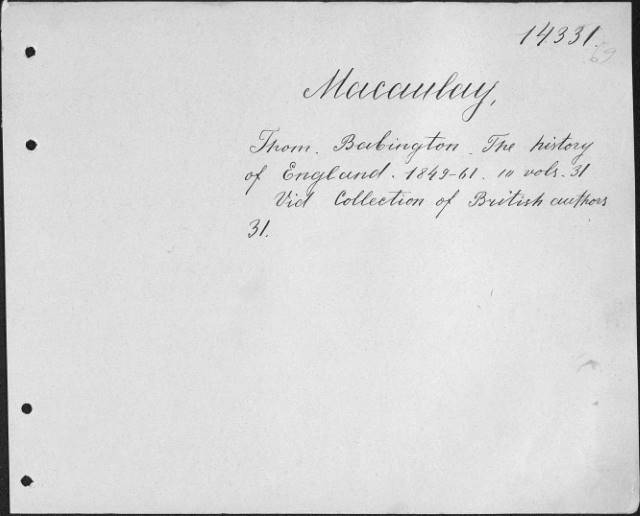 14331.
69
Macaulay,
Thom. Babington. The history
of England. 1849-61. 10 vols. 31
Vid Collection of British authors
31.